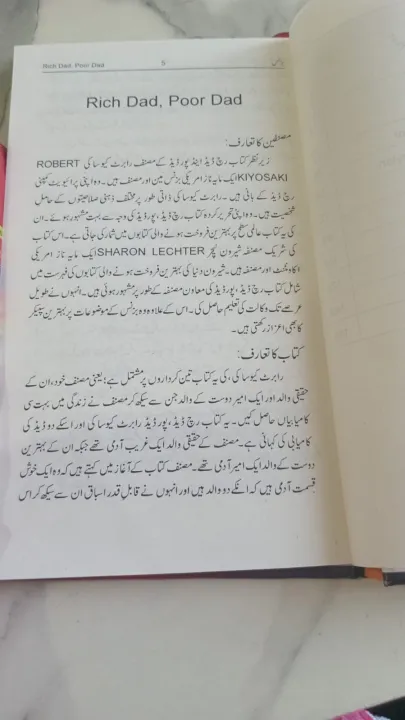 Rich Dad, Poor Dad 5
Rich Dad, Poor Dad
مصنفین کا تعارف:
زیر نظر کتاب رچ ڈیڈ اینڈ پور ڈیڈ کے مصنف رابرٹ کیوساکی ROBERT
KIYOSAKI ایک مایہ ناز امریکی بزنس مین اور مصنف ہیں۔ وہ اپنی پرائیویٹ کمپنی
رچ ڈیڈ کے بانی ہیں۔ رابرٹ کیوساکی ذاتی طور پر مختلف ذہنی صلاحیتوں کے حامل
شخصیت ہیں۔ وہ اپنی تحریر کردہ کتاب رچ ڈیڈ، پور ڈیڈ کی وجہ سے بہت مشہور ہوئے۔ ان
کی یہ کتاب عالمی سطح پر بہترین فروخت ہونے والی کتابوں میں شمار کی جاتی ہے۔ اس کتاب
کی شریک مصنفہ شیرون لیچر SHARON LECHTER ایک مایہ ناز امریکی
اکاؤنٹنٹ اور مصنفہ ہیں۔ شیرون دنیا کی بہترین فروخت ہونے والی کتابوں کی فہرست میں
شامل کتاب رچ ڈیڈ، پور ڈیڈ کی معاون مصنفہ کے طور پر مشہور ہوئی ہیں۔ انہوں نے طویل
عرصے تک وکالت کی تعلیم حاصل کی۔ اس کے علاوہ وہ بزنس کے موضوعات پر بہترین سپیکر
کا بھی اعزاز رکھتی ہیں۔
کتاب کا تعارف:
رابرٹ کیوساکی، کی یہ کتاب تین کرداروں پر مشتمل ہے؛ یعنی مصنف خود، ان کے
حقیقی والد اور ایک امیر دوست کے والد جن سے سیکھ کر مصنف نے زندگی میں بہت سی
کامیابیاں حاصل کیں۔ یہ کتاب رچ ڈیڈ، پور ڈیڈ رابرٹ کیوساکی اور اسکے دو ڈیڈ کی
کامیابی کی کہانی ہے۔ مصنف کے حقیقی والد ایک غریب آدمی تھے جبکہ ان کے بہترین
دوست کے والد ایک امیر آدمی تھے۔ مصنف کتاب کے آغاز میں کہتے ہیں کہ وہ ایک خوش
قسمت آدمی ہیں کہ انکے دو والد ہیں اور انہوں نے قابلِ قدر اسباق ان سے سیکھ کر اس